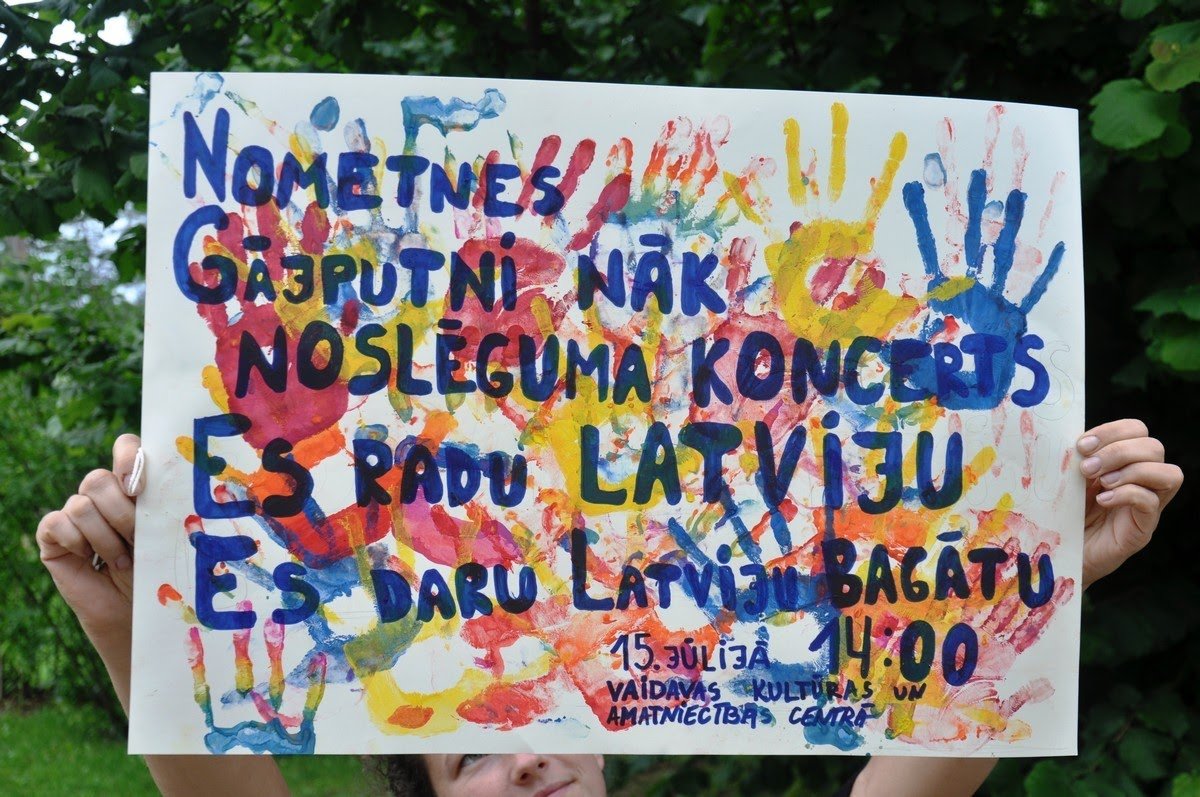 NOMETNES
GĀJPUTNI NĀK
NOSLĒGUMA KONCERTS
ES RADU LATVIJU
ES DARU LATVIJU BAGĀTU
15. JŪLIJĀ 14:00
VAIDAVAS KULTŪRAS UN
AMATNIECĪBAS CENTRĀ